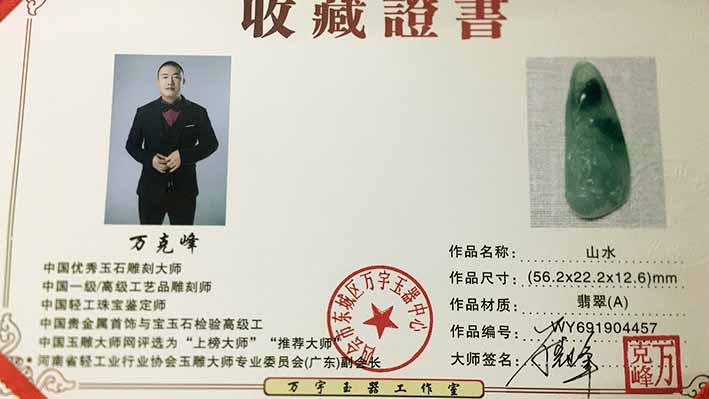 收藏證書
万克峰
中国优秀玉石雕刻大师
中国一级/高级工艺品雕刻师
中国轻工珠宝鉴定师
中国贵金属首饰与宝玉石检验高级工
中国玉雕大师网评选为“上榜大师”“推荐大师”
河南省轻工业行业协会玉雕大师专业委员会(广东)副会长
会市东城区万宇玉器中心
作品名称：山水
作品尺寸：(56.2x22.2x12.6)mm
作品材质：翡翠(A)
作品编号：WY691904457
大师签名：
万克峰
万宇玉器工作室